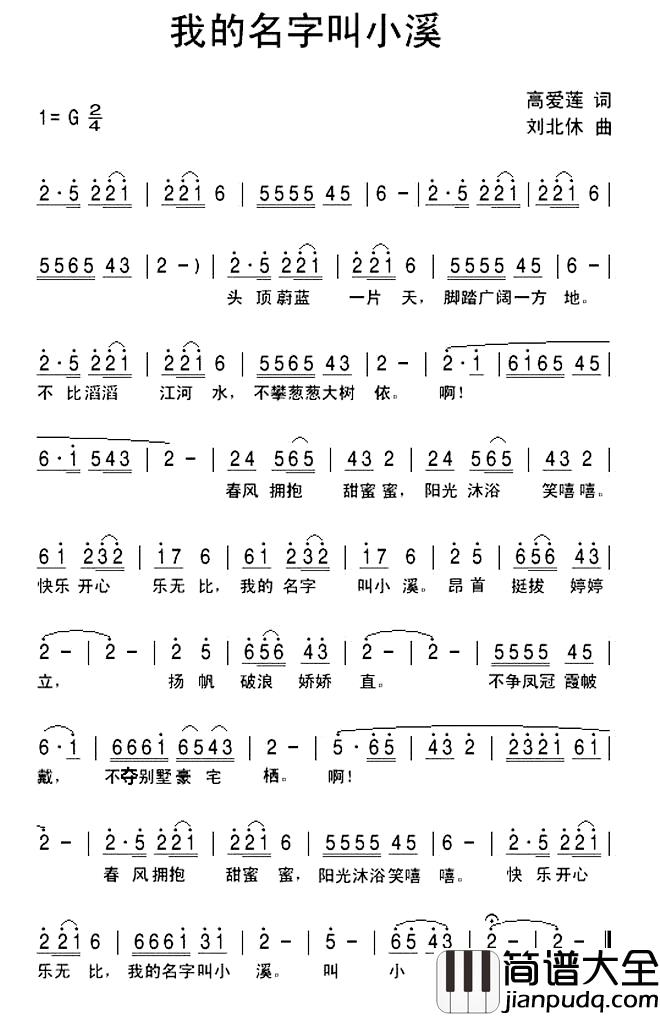 我的名字叫小溪
高爱莲 词
1= G 2/4
刘北休 曲
2·5 221 | 221 6 | 5555 45 | 6 – | 2·5 221 | 221 6 |
5565 43 | 2 –) | 2·5 221 | 221 6 | 5555 45 | 6 – |
头顶蔚蓝 一片天，脚踏广阔一方地。
2·5 221 | 221 6 | 5565 43 | 2 – | 2·1 | 6165 45 |
不比滔滔 江河水，不攀葱葱大树依。啊！
6·1 543 | 2 – | 24 565 | 43 2 | 24 565 | 43 2 |
春风拥抱 甜蜜蜜，阳光沐浴 笑嘻嘻。
61 232 | 17 6 | 61 232 | 17 6 | 2 5 | 656 43 |
快乐开心 乐无比，我的名字 叫小溪。昂首 挺拔 婷婷
2 – | 2 – | 2 5 | 656 43 | 2 – | 2 – | 5555 45 |
立， 扬帆 破浪 娇娇 直。 不争凤冠 霞帔
6·1 | 6661 6543 | 2 – | 5·65 | 43 2 | 2321 61 |
戴， 不夺别墅豪宅 栖。啊！
2 – | 2·5 221 | 221 6 | 5555 45 | 6 – | 2·5 221 |
春风拥抱 甜蜜蜜，阳光沐浴笑嘻嘻。快乐开心
221 6 | 6661 31 | 2 – | 5 – | 65 43 | 2 – | 2 – ‖
乐无比，我的名字叫小溪。叫小
简谱大全
jianpudq.com